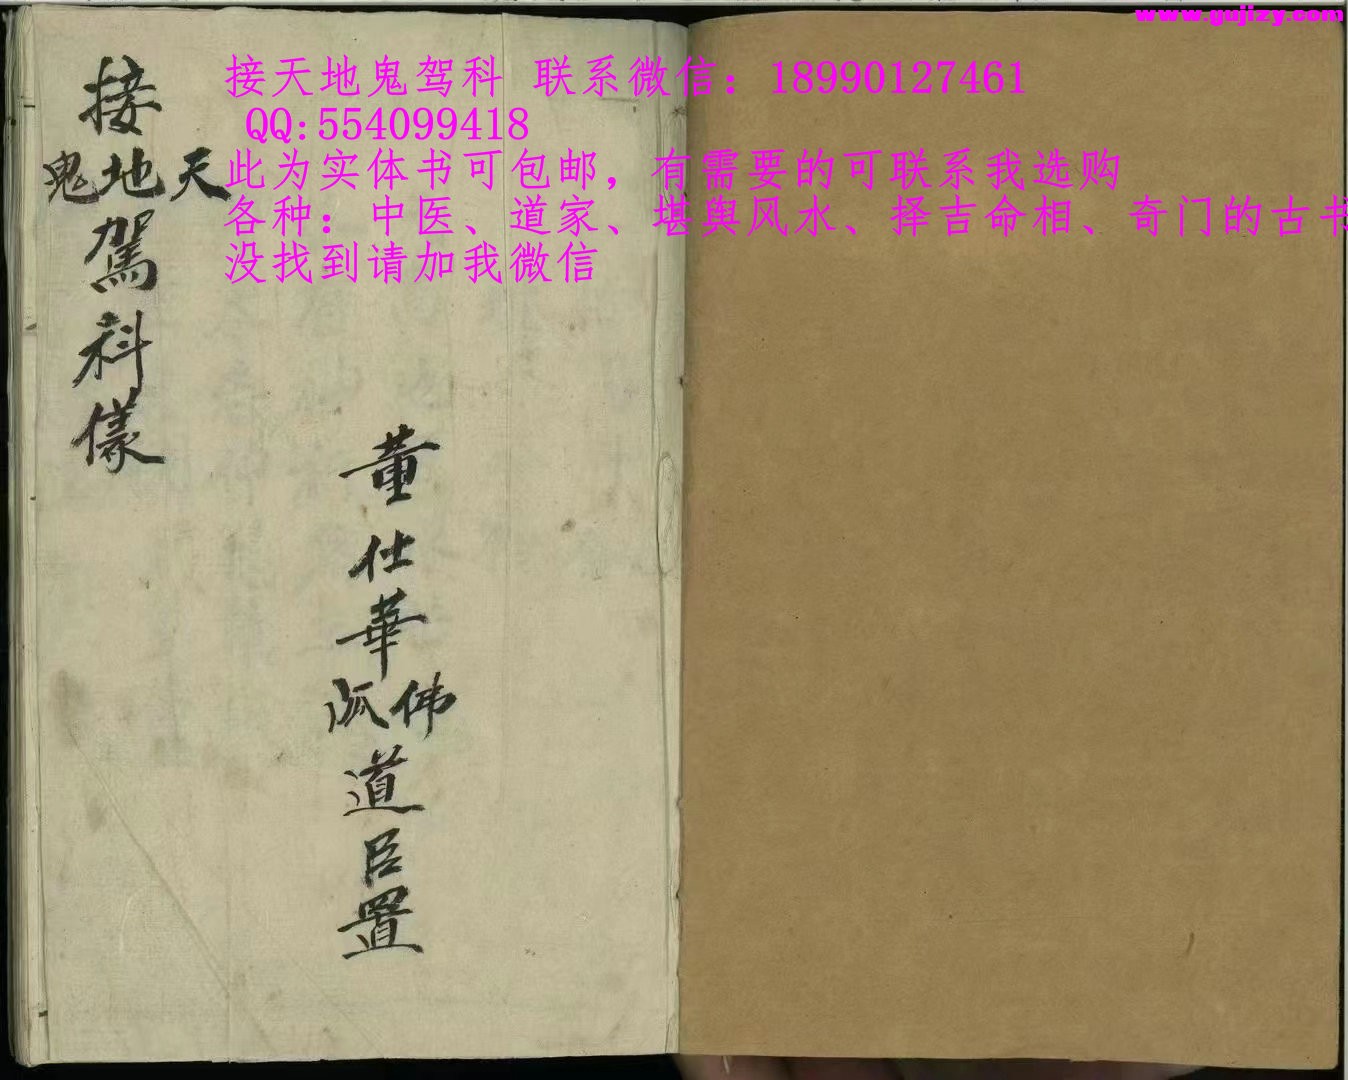 www.gujizy.com
接天地鬼驾科 联系微信：18990127461
QQ:554099418
此为实体书可包邮，有需要的可联系我选购
各种：中医、道家、堪舆风水、择吉命相、奇门的古书
没找到请加我微信
接
天地鬼
駕科儀
董仕華
佛
道臣置